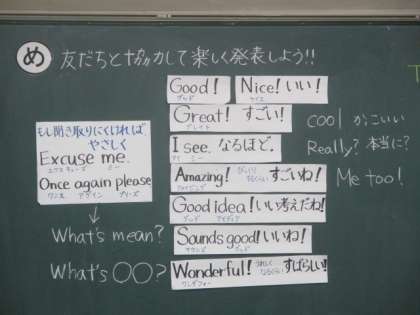 め 友だちと協力して楽しく発表しよう!!
Good!
グッド
Nice! いい!
ナイス
Great! すごい!
グレイト
cool かっこいい
I see. なるほど.
アイ シー
Really? 本当に?
Amazing! びっくりするくらい すごいね!
アメイジング
Me too!
Good idea! いい考えだね!
グッド アイディア
Sounds good! いいね!
サウンズ グッド
Wonderful! すばらしい!
ワンダフォー
もし聞き取りにくければ,
やさしく
Excuse me.
エクスキューズ ミー
Once again please
ワンス アゲイン プリーズ
↓
What's mean?
What's ○○?